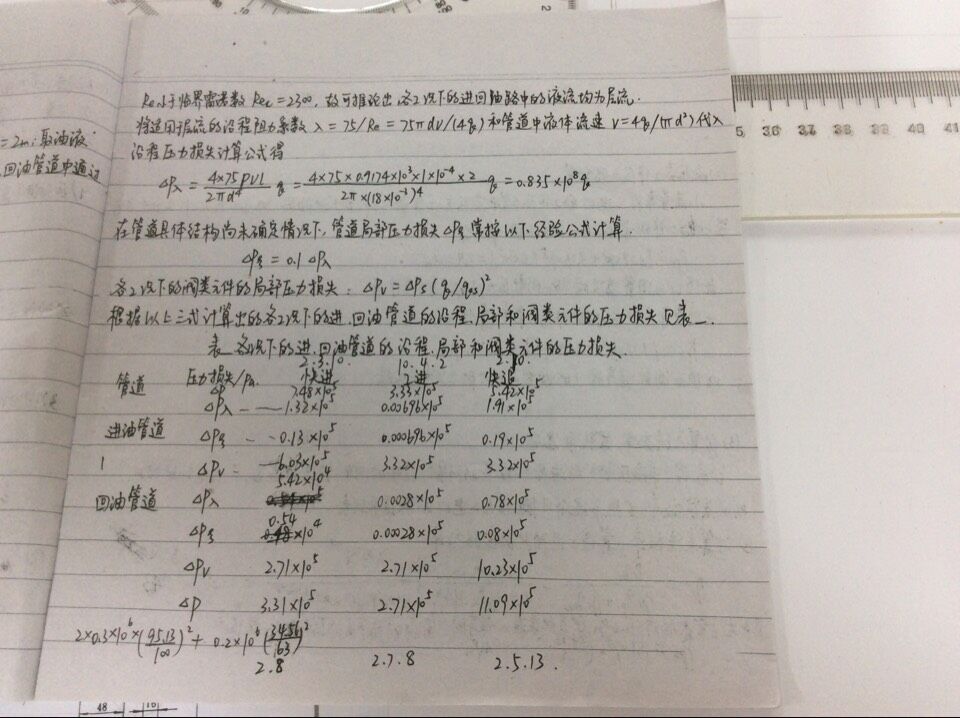 = 2m; 取油液
回油管道中通过
Re小于临界雷诺数 Rec = 2300, 故可推论出: 各工况下的进回油路中的液流均为层流.
将适用于层流的沿程阻力系数 λ = 75/Re = 75πdν/(4q) 和管道中液体流速 v=4q/(πd²)代入
沿程压力损失计算公式得
ΔPλ = 4×75ρνl / 2πd⁴ q = 4×75×0.9174×10³×1×10⁻⁴×2 / 2π×(18×10⁻³)⁴ q = 0.835×10⁸q
在管道具体结构尚未确定情况下, 管道局部压力损失ΔPξ常按以下经验公式计算.
ΔPξ = 0.1ΔPλ
各工况下的阀类元件的局部压力损失: ΔPv = ΔPs(q/qs)²
根据以上三式计算出的各工况下的进、回油管道的沿程、局部和阀类元件的压力损失见表一.
表一 各况下的进、回油管道的沿程、局部和阀类元件的压力损失.
2.3.10. 10.4.2 2.10.
管道 压力损失/Pa. 快进 工进 快退
ΔP 7.48×10⁵ 3.33×10⁵ 5.42×10⁵
ΔPλ 1.32×10⁵ 0.00696×10⁵ 1.91×10⁵
进油管道 ΔPξ 0.13×10⁵ 0.000696×10⁵ 0.19×10⁵
ΔPv 6.03×10⁵ 3.32×10⁵ 3.32×10⁵
5.42×10⁴
回油管道 ΔPλ 0.0028×10⁵ 0.78×10⁵
0.54
ΔPξ ×10⁴ 0.00028×10⁵ 0.08×10⁵
ΔPv 2.71×10⁵ 2.71×10⁵ 10.23×10⁵
ΔP 3.31×10⁵ 2.71×10⁵ 11.09×10⁵
2×0.3×10⁶×(95.13/100)² + 0.2×10⁶(34.56/63)²
2.8 2.7.8 2.5.13.
5 36 37 38 39 40 41
48 16